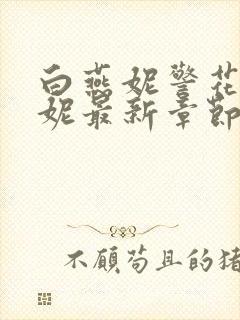 白燕妮警花
妮最新章节
不顾苟且的猪